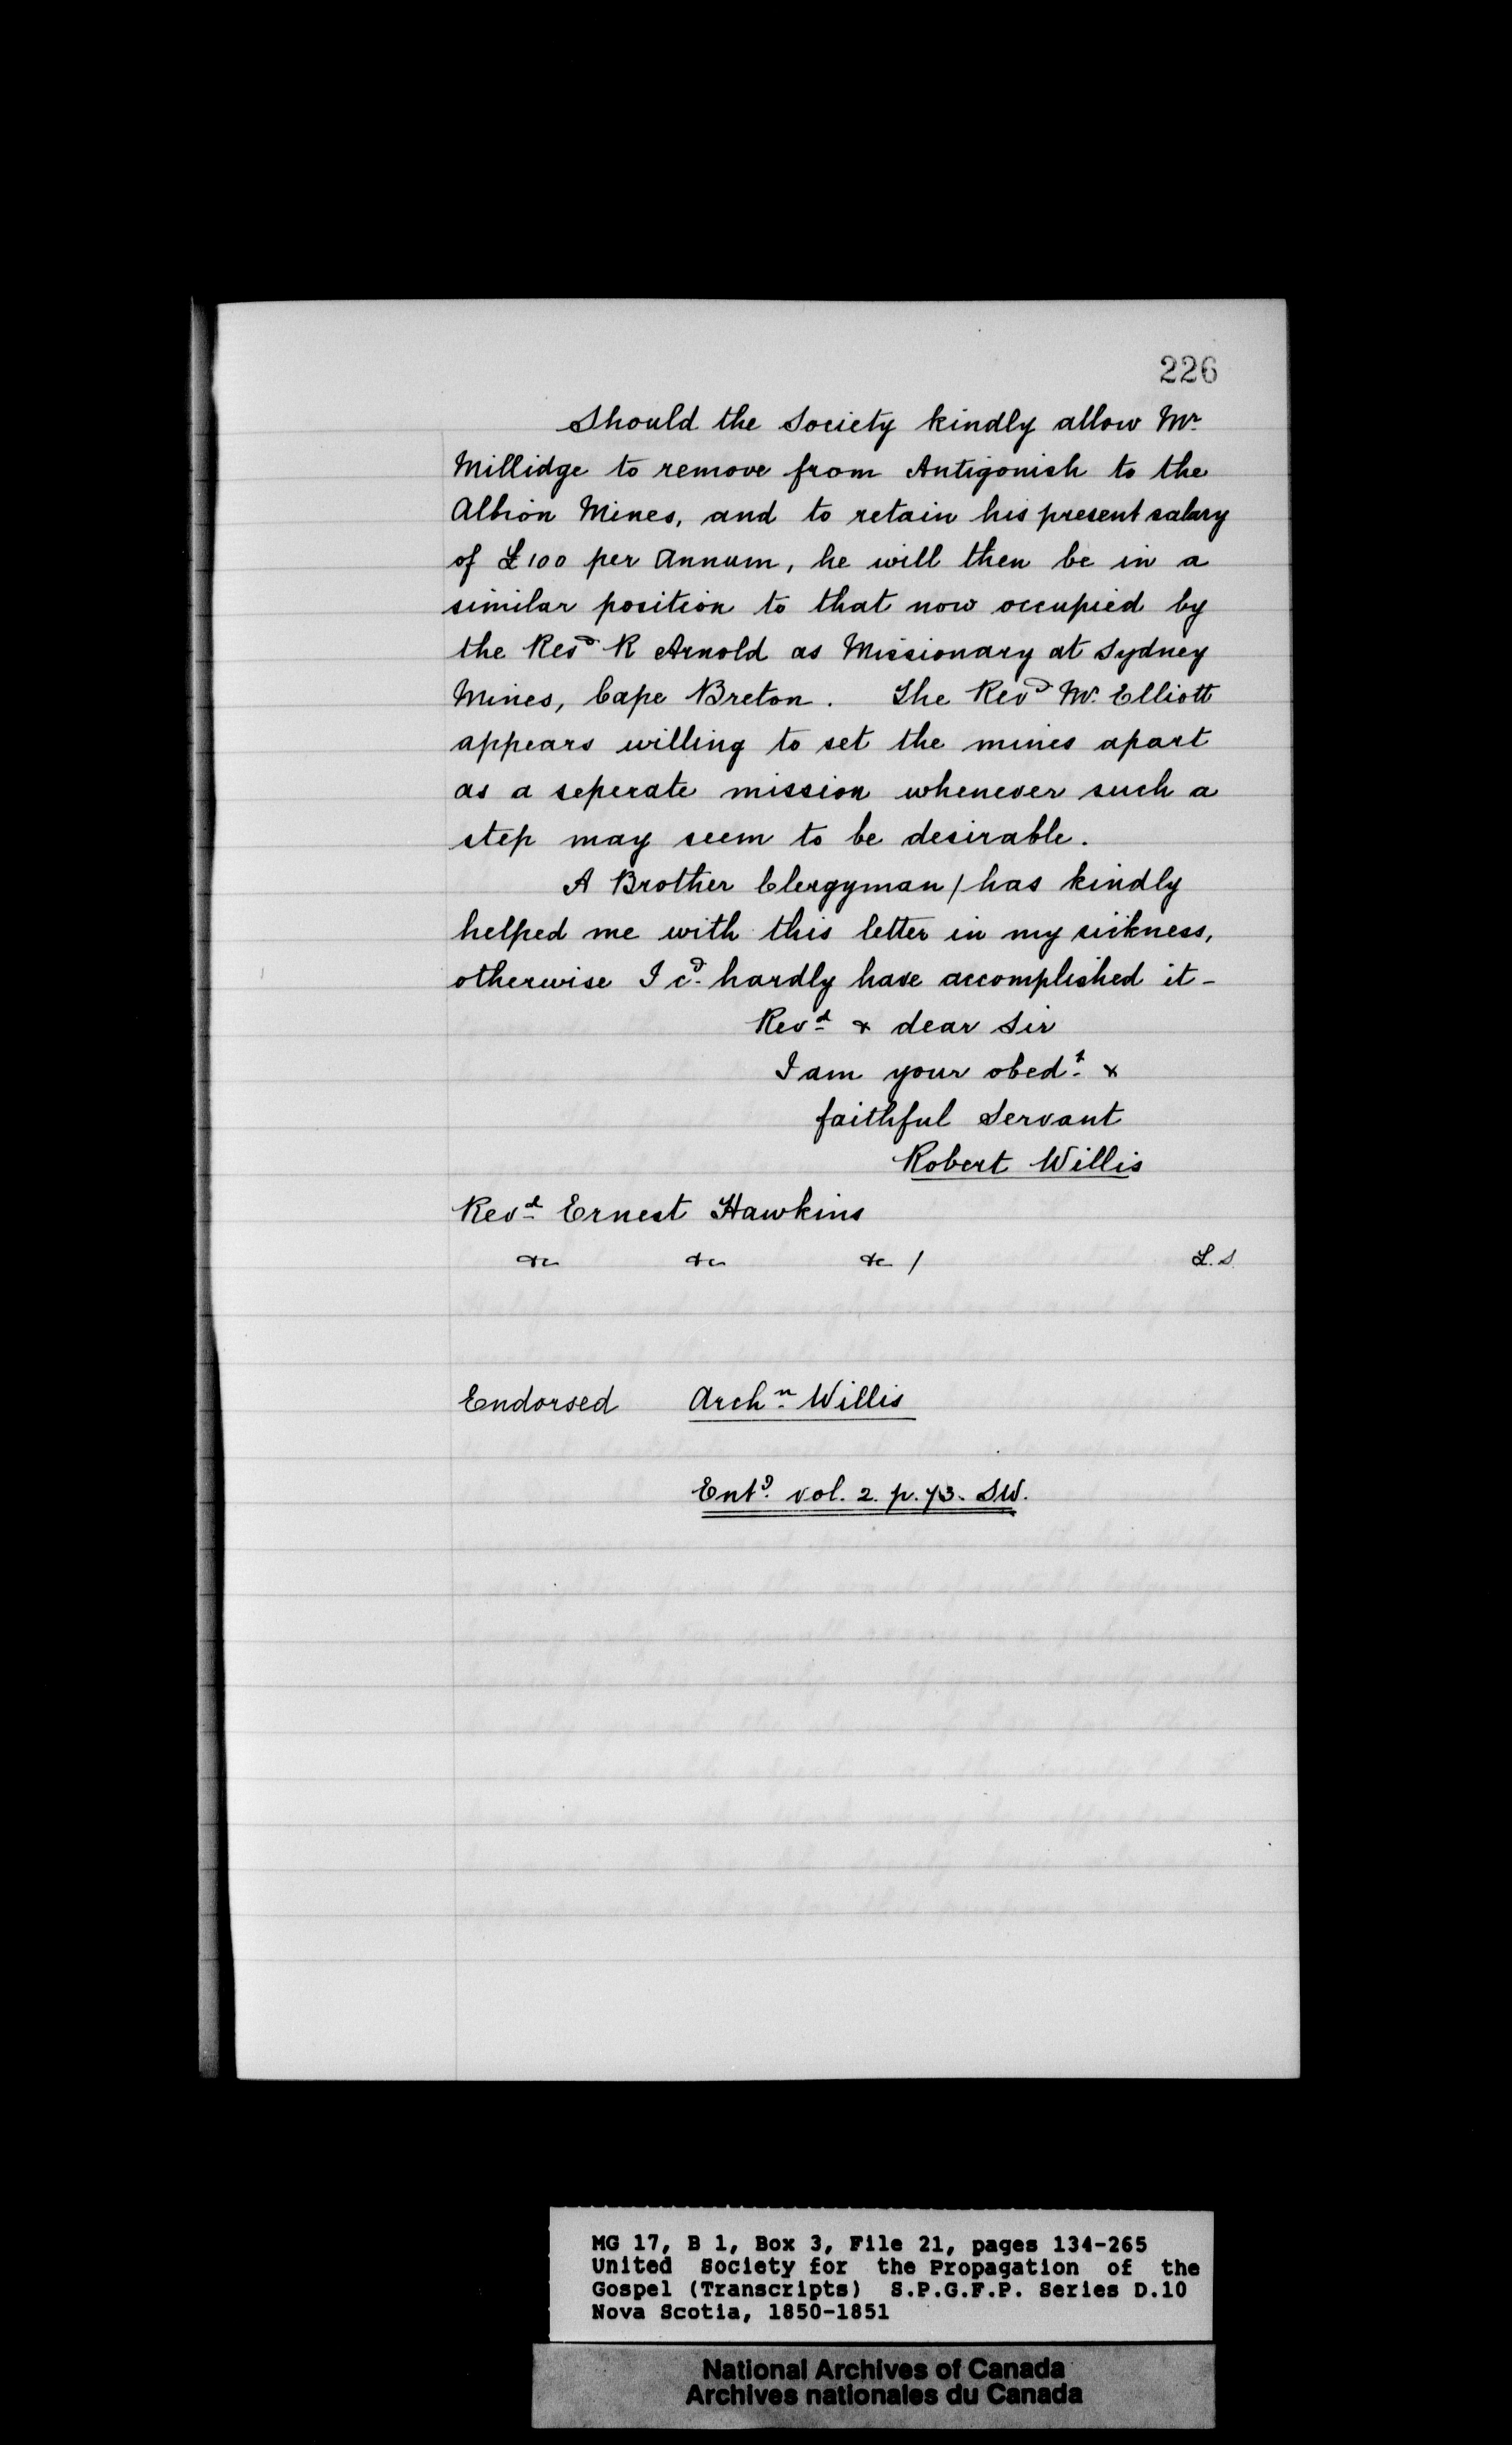 226
Should the Society kindly allow Mr
Millidge to remove from Antigonish to the
Albion Mines, and to retain his present salary
of £100 per Annum, he will then be in a
similar position to that now occupied by
the Revd R Arnold as Missionary at Sydney
Mines, Cape Breton. The Revd Mr. Elliott
appears willing to set the mines apart
as a seperate mission whenever such a
step may seem to be desirable.
A Brother Clergyman / has kindly
helped me with this letter in my sickness,
otherwise I cd. hardly have accomplished it -
Revd & dear Sir
I am your obedt. &
faithful Servant
Robert Willis
Revd Ernest Hawkins
&c &c &c /
L.S.
Endorsed Archn. Willis
Entd. vol. 2. p. 73. SW.
MG 17, B 1, Box 3, File 21, pages 134-265
United Society for the Propagation of the
Gospel (Transcripts) S.P.G.F.P. Series D.10
Nova Scotia, 1850-1851
National Archives of Canada
Archives nationales du Canada